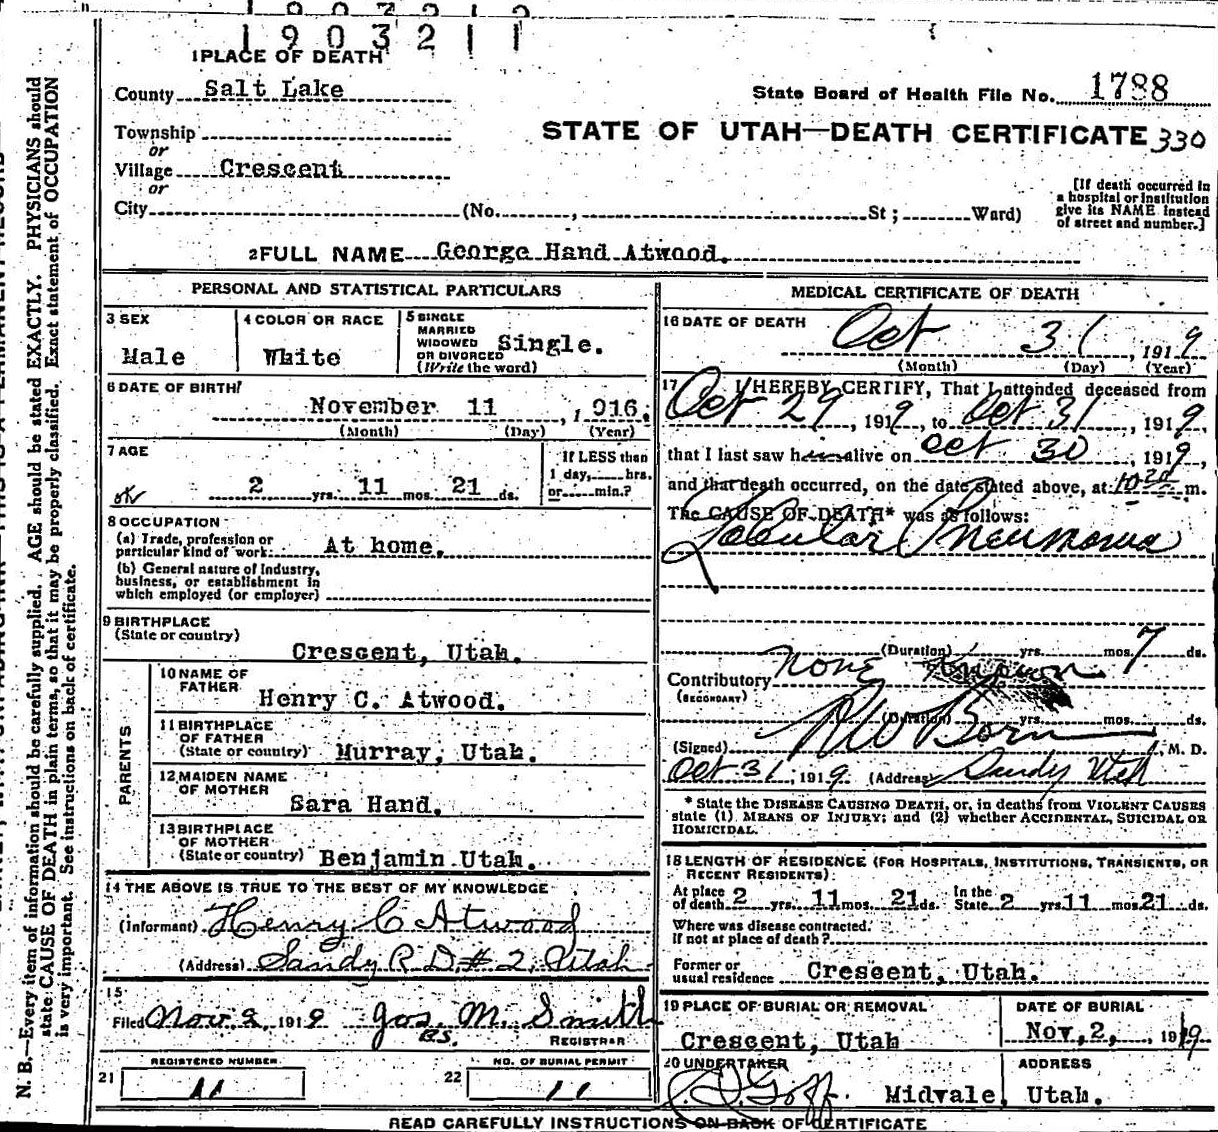 1903211
1 PLACE OF DEATH
County Salt Lake
State Board of Health File No. 1788
Township
or
STATE OF UTAH—DEATH CERTIFICATE 330
Village Crescent
or
City (No. , St ; Ward)
[If death occurred in
a hospital or institution
give its NAME instead
of street and number.]
2 FULL NAME George Hand Atwood.
PERSONAL AND STATISTICAL PARTICULARS
3 SEX
Male
4 COLOR OR RACE
White
5 SINGLE
MARRIED
WIDOWED
OR DIVORCED
(Write the word)
Single.
6 DATE OF BIRTH
November 11 , 1 916.
(Month) (Day) (Year)
7 AGE
2 yrs. 11 mos. 21 ds.
If LESS than
1 day, hrs.
or min.?
8 OCCUPATION
(a) Trade, profession or
particular kind of work: At home.
(b) General nature of Industry,
business, or establishment in
which employed (or employer)
9 BIRTHPLACE
(State or country)
Crescent, Utah.
PARENTS
10 NAME OF
FATHER
Henry C. Atwood.
11 BIRTHPLACE
OF FATHER
(State or country) Murray, Utah.
12 MAIDEN NAME
OF MOTHER
Sara Hand.
13 BIRTHPLACE
OF MOTHER
(State or country) Benjamin Utah.
14 THE ABOVE IS TRUE TO THE BEST OF MY KNOWLEDGE
(Informant) Henry C Atwood
(Address) Sandy R.D.# 2, Utah
15
Filed Nov 2, 1919 Jos. M. Smith
REGISTRAR
REGISTERED NUMBER
21 11
NO. OF BURIAL PERMIT
22 11
MEDICAL CERTIFICATE OF DEATH
16 DATE OF DEATH
Oct 31 , 1919
(Month) (Day) (Year)
17 I HEREBY CERTIFY, That I attended deceased from
Oct 29 , 1919, to Oct 31 , 1919,
that I last saw him alive on Oct 30 , 1919,
and that death occurred, on the date stated above, at 10 m.
The CAUSE OF DEATH* was as follows:
Lobular Pneumonia
(Duration) yrs. mos. 7 ds.
Contributory None Known
(SECONDARY)
(Duration) yrs. mos. ds.
(Signed) RW Born M. D.
Oct 31, 1919. (Address) Sandy Utah
* State the DISEASE CAUSING DEATH, or, in deaths from VIOLENT CAUSES
state (1) MEANS OF INJURY; and (2) whether ACCIDENTAL, SUICIDAL OR
HOMICIDAL.
18 LENGTH OF RESIDENCE (FOR HOSPITALS, INSTITUTIONS, TRANSIENTS, OR
RECENT RESIDENTS)
At place
of death 2 yrs. 11 mos. 21 ds.
In the
State 2 yrs 11 mos 21 ds.
Where was disease contracted.
if not at place of death?
Former or
usual residence Crescent, Utah.
19 PLACE OF BURIAL OR REMOVAL
Crescent, Utah
DATE OF BURIAL
Nov, 2, 1919
20 UNDERTAKER
Goff.
ADDRESS
Midvale, Utah.
READ CAREFULLY INSTRUCTIONS ON BACK OF CERTIFICATE
N. B.—Every item of information should be carefully supplied. AGE should be stated EXACTLY. PHYSICIANS should
state CAUSE OF DEATH in plain terms, so that it may be properly classified. Exact statement of OCCUPATION
is very important. See instructions on back of certificate.